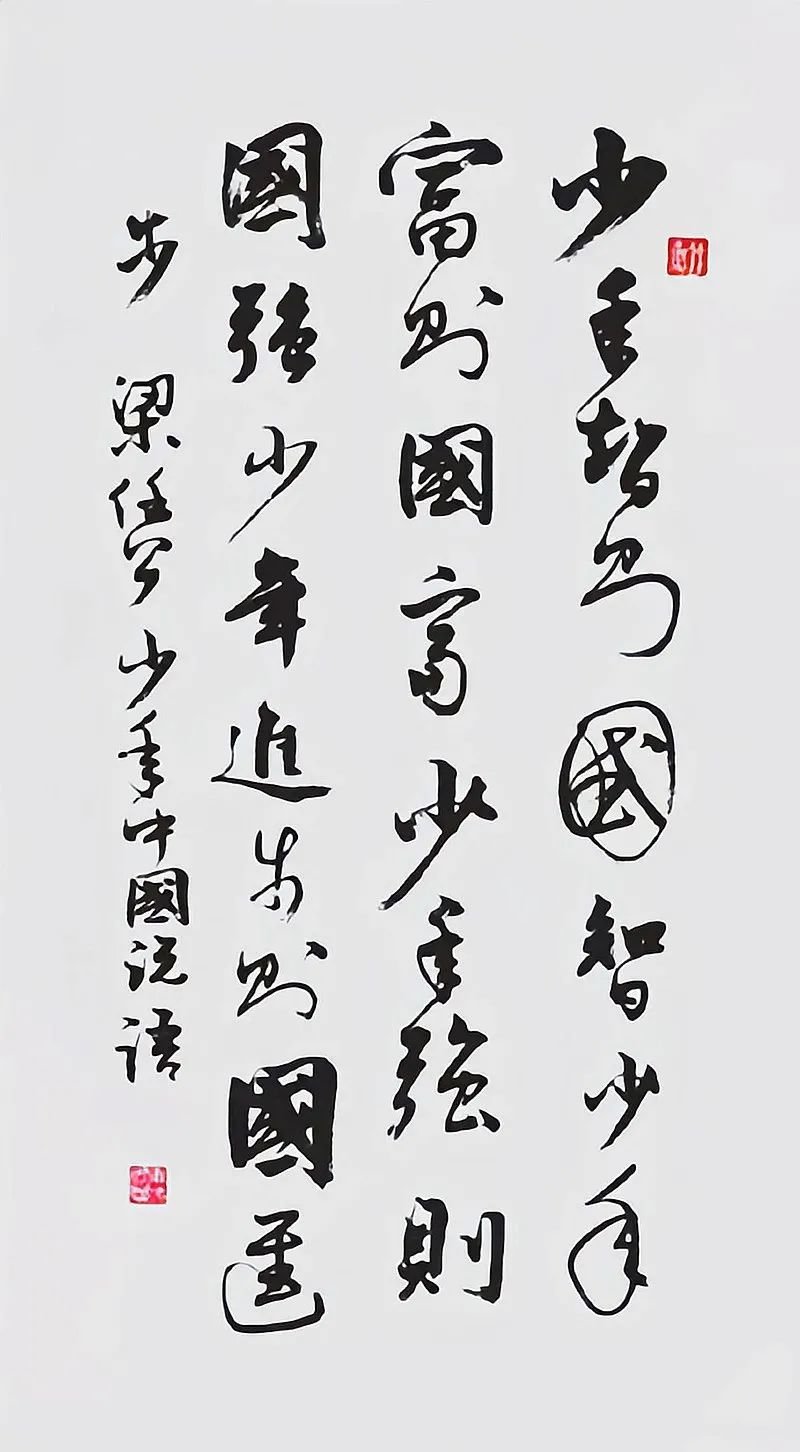 少年智則國智少年
富則國富少年強則
國強少年進步則國進
步 梁任公少年中國說語